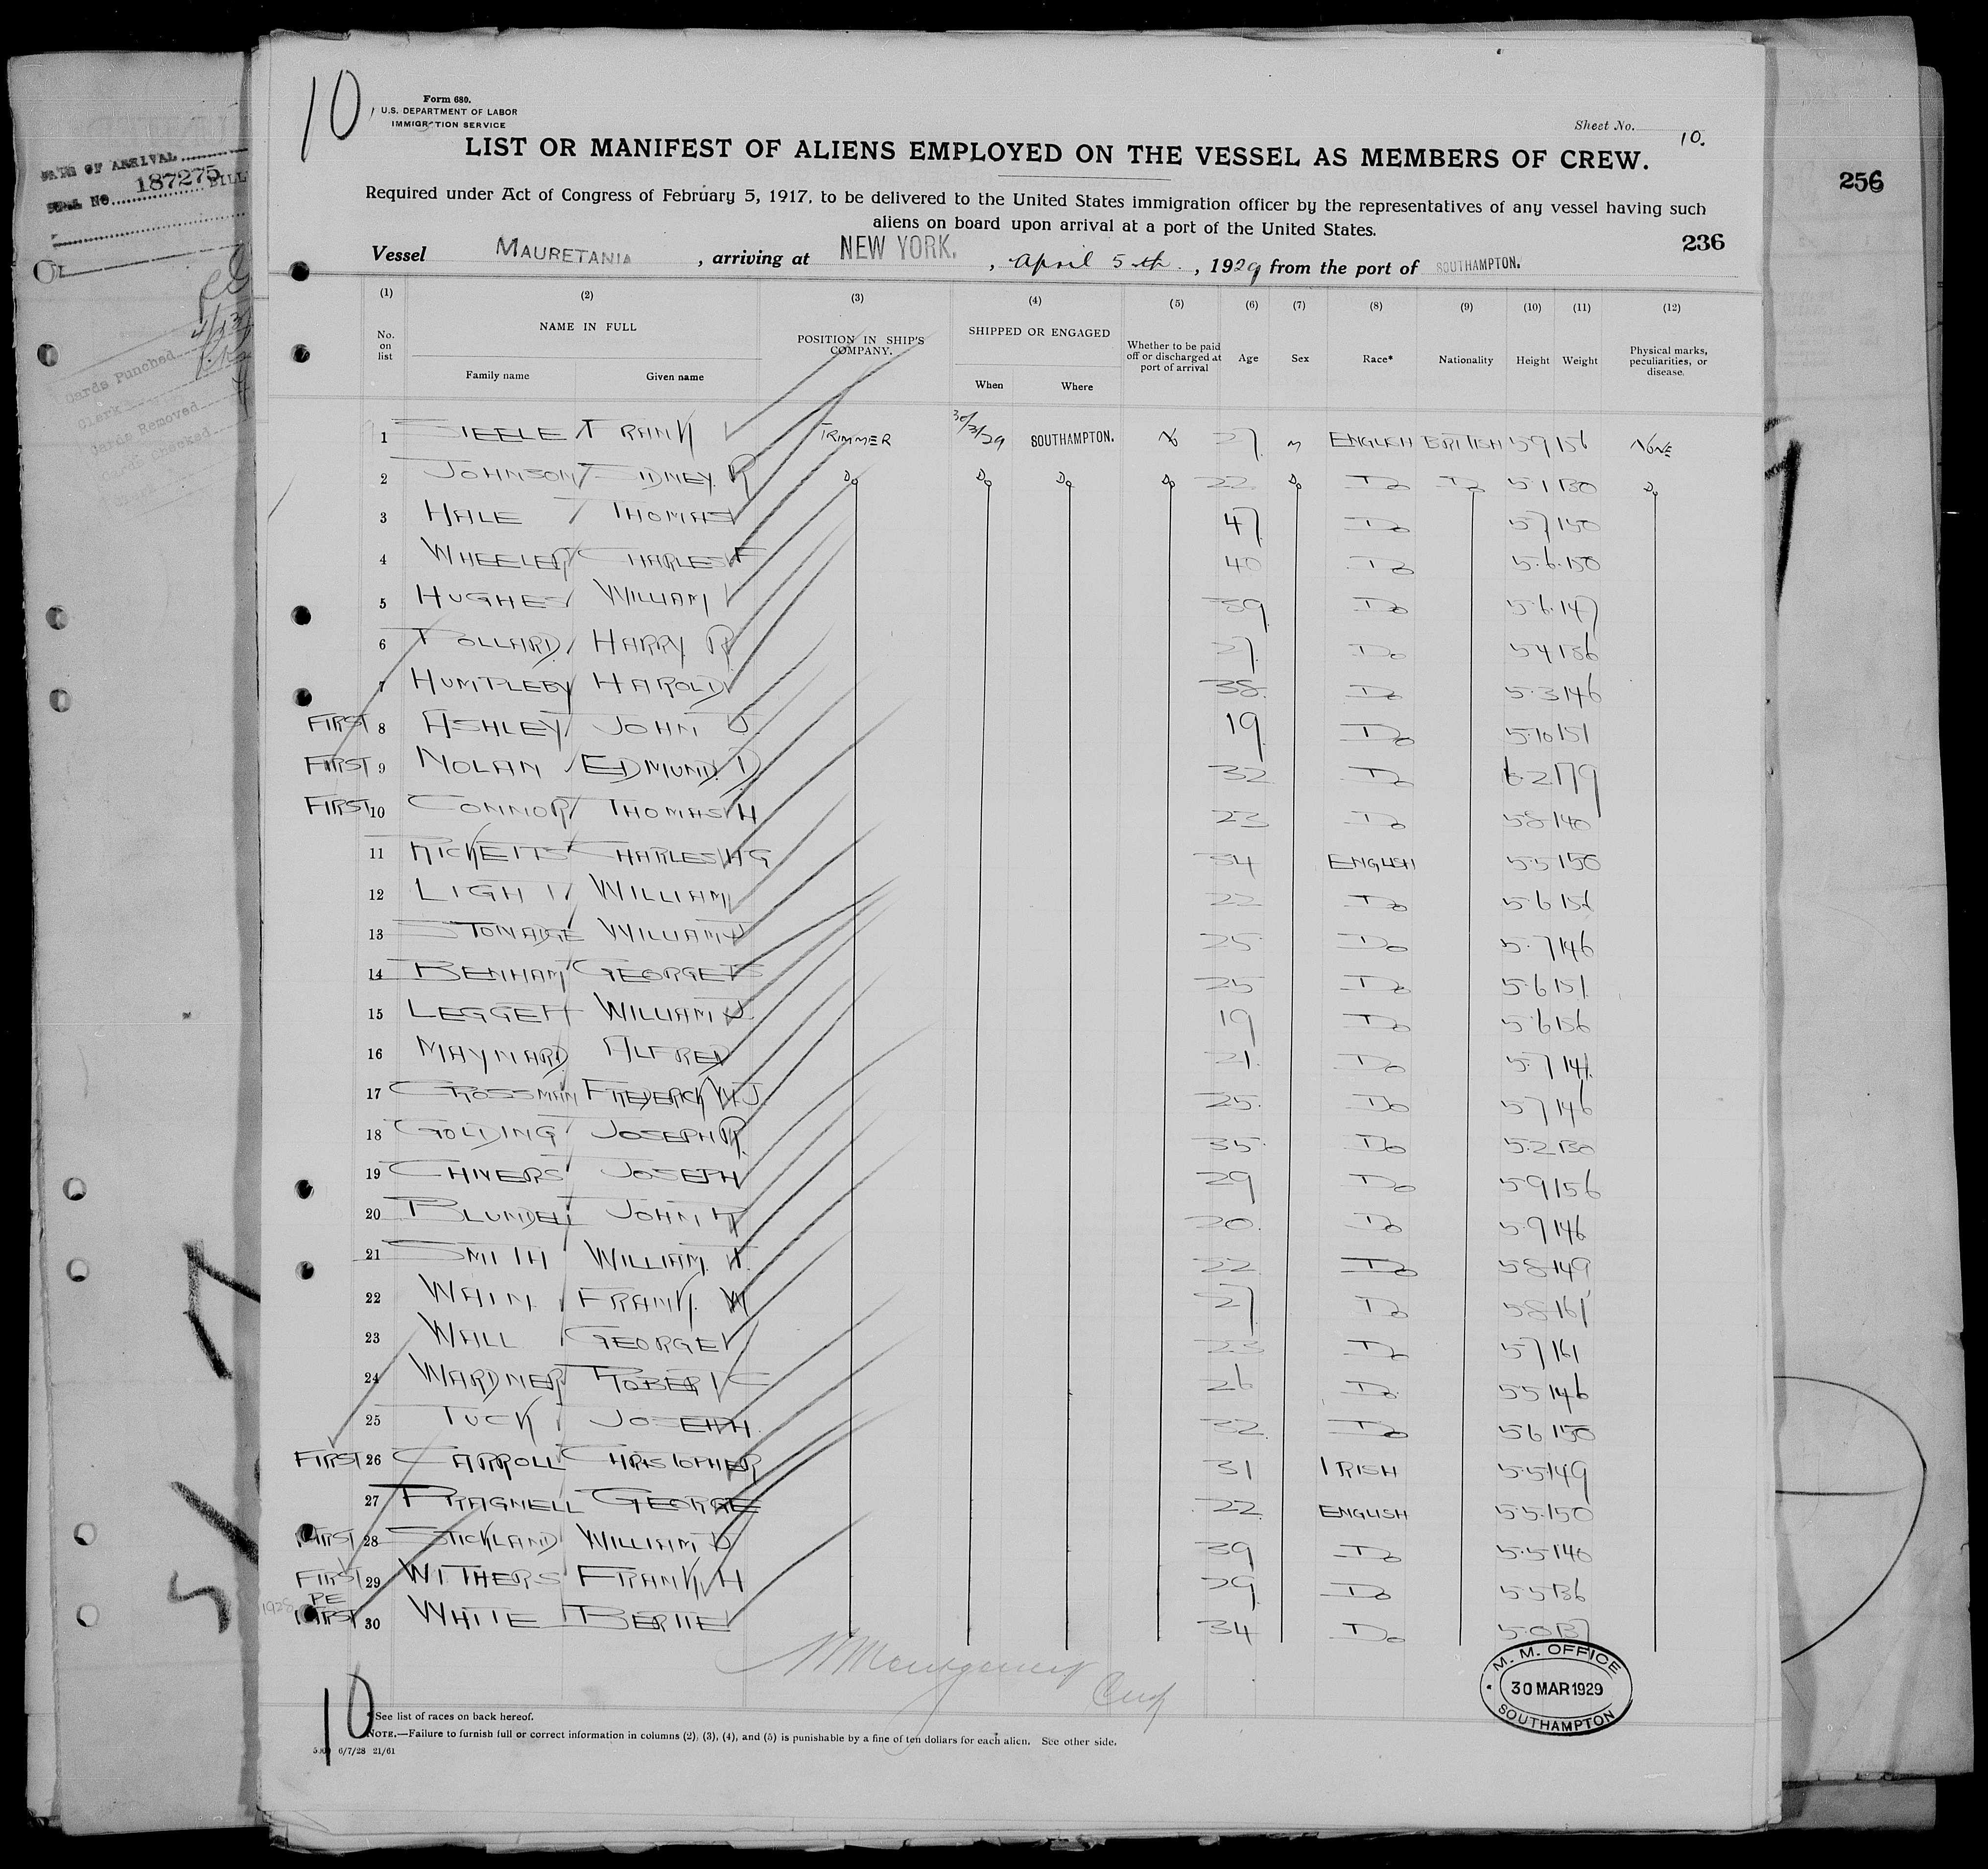 10
Form 680.
U.S. DEPARTMENT OF LABOR
IMMIGRATION SERVICE
Sheet No. 10.
LIST OR MANIFEST OF ALIENS EMPLOYED ON THE VESSEL AS MEMBERS OF CREW.
Required under Act of Congress of February 5, 1917, to be delivered to the United States immigration officer by the representatives of any vessel having such
aliens on board upon arrival at a port of the United States.
256
236
DATE OF ARRIVAL
187275
Cards Punched
Clerk
Cards Removed
Cards Checked
Vessel MAURETANIA, arriving at NEW YORK., April 5th., 1929 from the port of SOUTHAMPTON.
(1) (2) (3) (4) (5) (6) (7) (8) (9) (10) (11) (12)
No. on list NAME IN FULL Family name Given name POSITION IN SHIP'S COMPANY. SHIPPED OR ENGAGED When Where Whether to be paid off or discharged at port of arrival Age Sex Race* Nationality Height Weight Physical marks, peculiarities, or disease.
1 STEELE FRANK TRIMMER 30/3/29 SOUTHAMPTON. No 27 M ENGLISH BRITISH 5 9 156 NONE
2 JOHNSON SIDNEY R Do Do Do Do 22 Do Do Do 5 1 130 Do
3 HALE THOMAS 47 Do 5 7 150
4 WHEELER CHARLES F 40 Do 5.6.150
5 HUGHES WILLIAM 39 Do 5.6.147
6 POLLARD HARRY R 27 Do 5 4 136
7 HUMPLEBY HAROLD 38 Do 5.3 146
FIRST 8 ASHLEY JOHN J. 19 Do 5.10 151
FIRST 9 NOLAN EDMUND. D 32 Do 6.2 179
FIRST 10 CONNOR THOMAS H 23 Do 5 8 140
11 RICKETTS CHARLES H G 34 ENGLISH 5.5 150
12 LIGHT WILLIAM 22 Do 5 6 156
13 WILLIAM J 25 Do 5.7 146
14 BENHAM GEORGE 25 Do 5.6 151
15 LEGGETT WILLIAM J. 19 Do 5.6 156
16 MAYNARD ALFRED 21. Do 5.7 141
17 CROSSMAN FREDERICK W J. 25. Do 5 7 146
18 GOLDING JOSEPH R. 35. Do 5.2 130
19 CHIVERS JOSEPH 29 Do 5 9 156
20 BLUNDELL JOHN R Do 5.9 146
21 SMITH WILLIAM. H. 22 Do 5 8 149
22 WAIN FRANK. W 27 Do 5 8 161
23 WALL GEORGE 23 Do 5 7 161
24 WARDNER ROBERT C 26 Do. 5 5 146
25 TUCK JOSEPH. 32. Do 5 6 150
FIRST 26 CARROLL CHRISTOPHER 31 IRISH 5.5 149
27 PRAGNELL GEORGE 22 ENGLISH 5.5.150
FIRST 28 STICKLAND WILLIAM D 39 Do 5.5 140
FIRST 29 WITHERS FRANK H 29 Do 5 5 136
1928 PE FIRST 30 WHITE BERTIE 34 Do 5.0 137
M. M. OFFICE
30 MAR 1929
SOUTHAMPTON
10
* See list of races on back hereof.
NOTE.—Failure to furnish full or correct information in columns (2), (3), (4), and (5) is punishable by a fine of ten dollars for each alien. See other side.
6/7/28 21/61